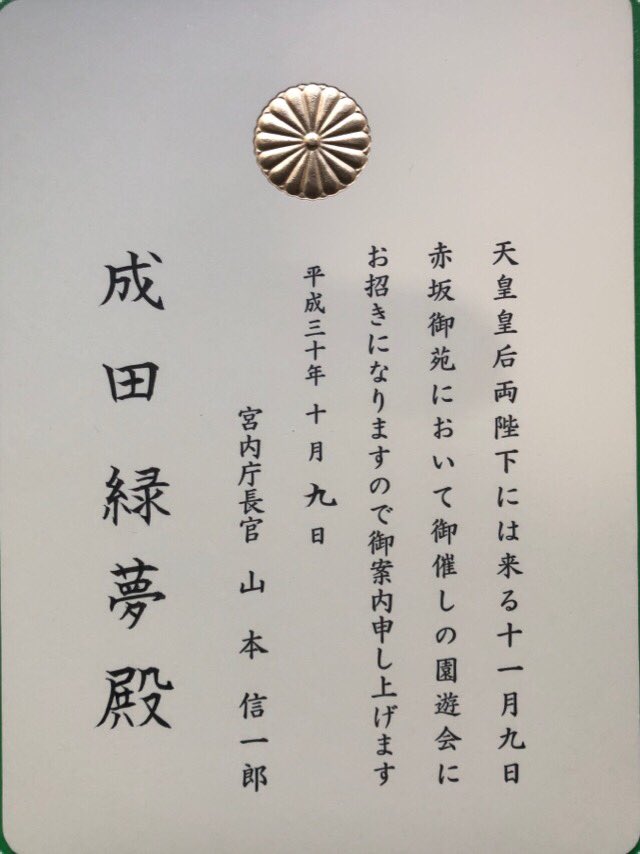 天皇皇后両陛下には来る十一月九日
赤坂御苑において御催しの園遊会に
お招きになりますので御案内申し上げます
平成三十年十月九日
宮内庁長官 山本信一郎
成田緑夢殿